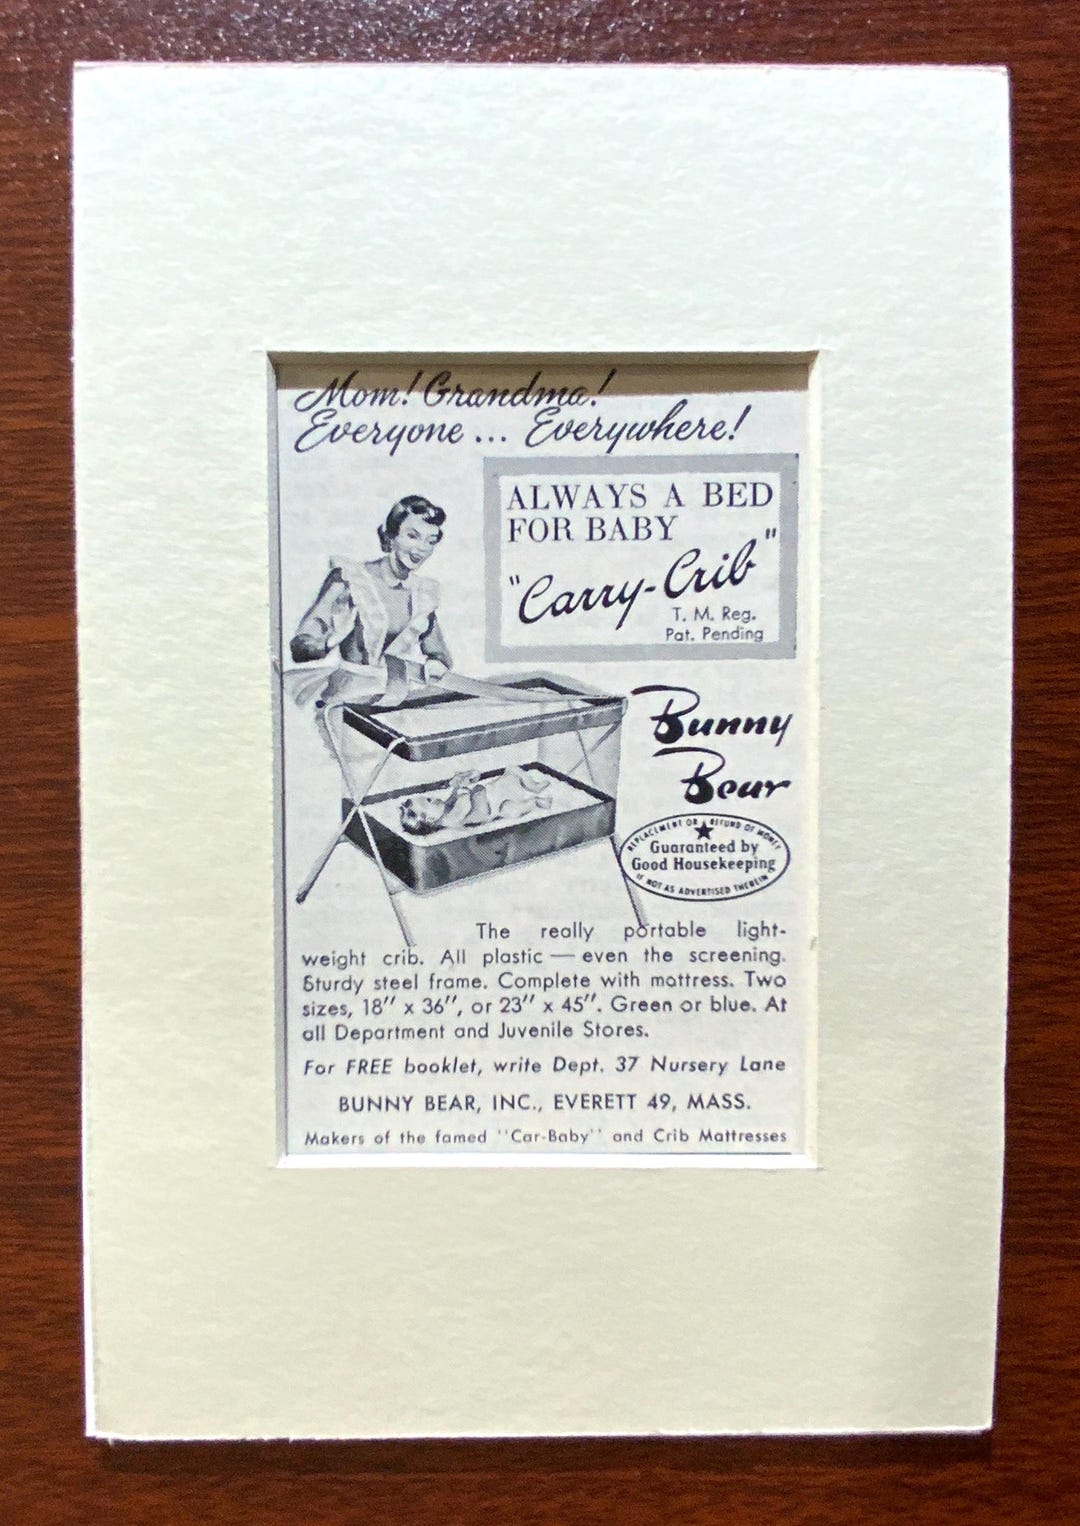 Mom! Grandma!
Everyone ... Everywhere!
ALWAYS A BED
FOR BABY
"Carry-Crib"
T. M. Reg.
Pat. Pending
Bunny
Bear
REPLACEMENT OR REFUND OF MONEY
Guaranteed by
Good Housekeeping
IF NOT AS ADVERTISED THEREIN
The really portable light-
weight crib. All plastic — even the screening.
Sturdy steel frame. Complete with mattress. Two
sizes, 18" x 36", or 23" x 45". Green or blue. At
all Department and Juvenile Stores.
For FREE booklet, write Dept. 37 Nursery Lane
BUNNY BEAR, INC., EVERETT 49, MASS.
Makers of the famed "Car-Baby" and Crib Mattresses